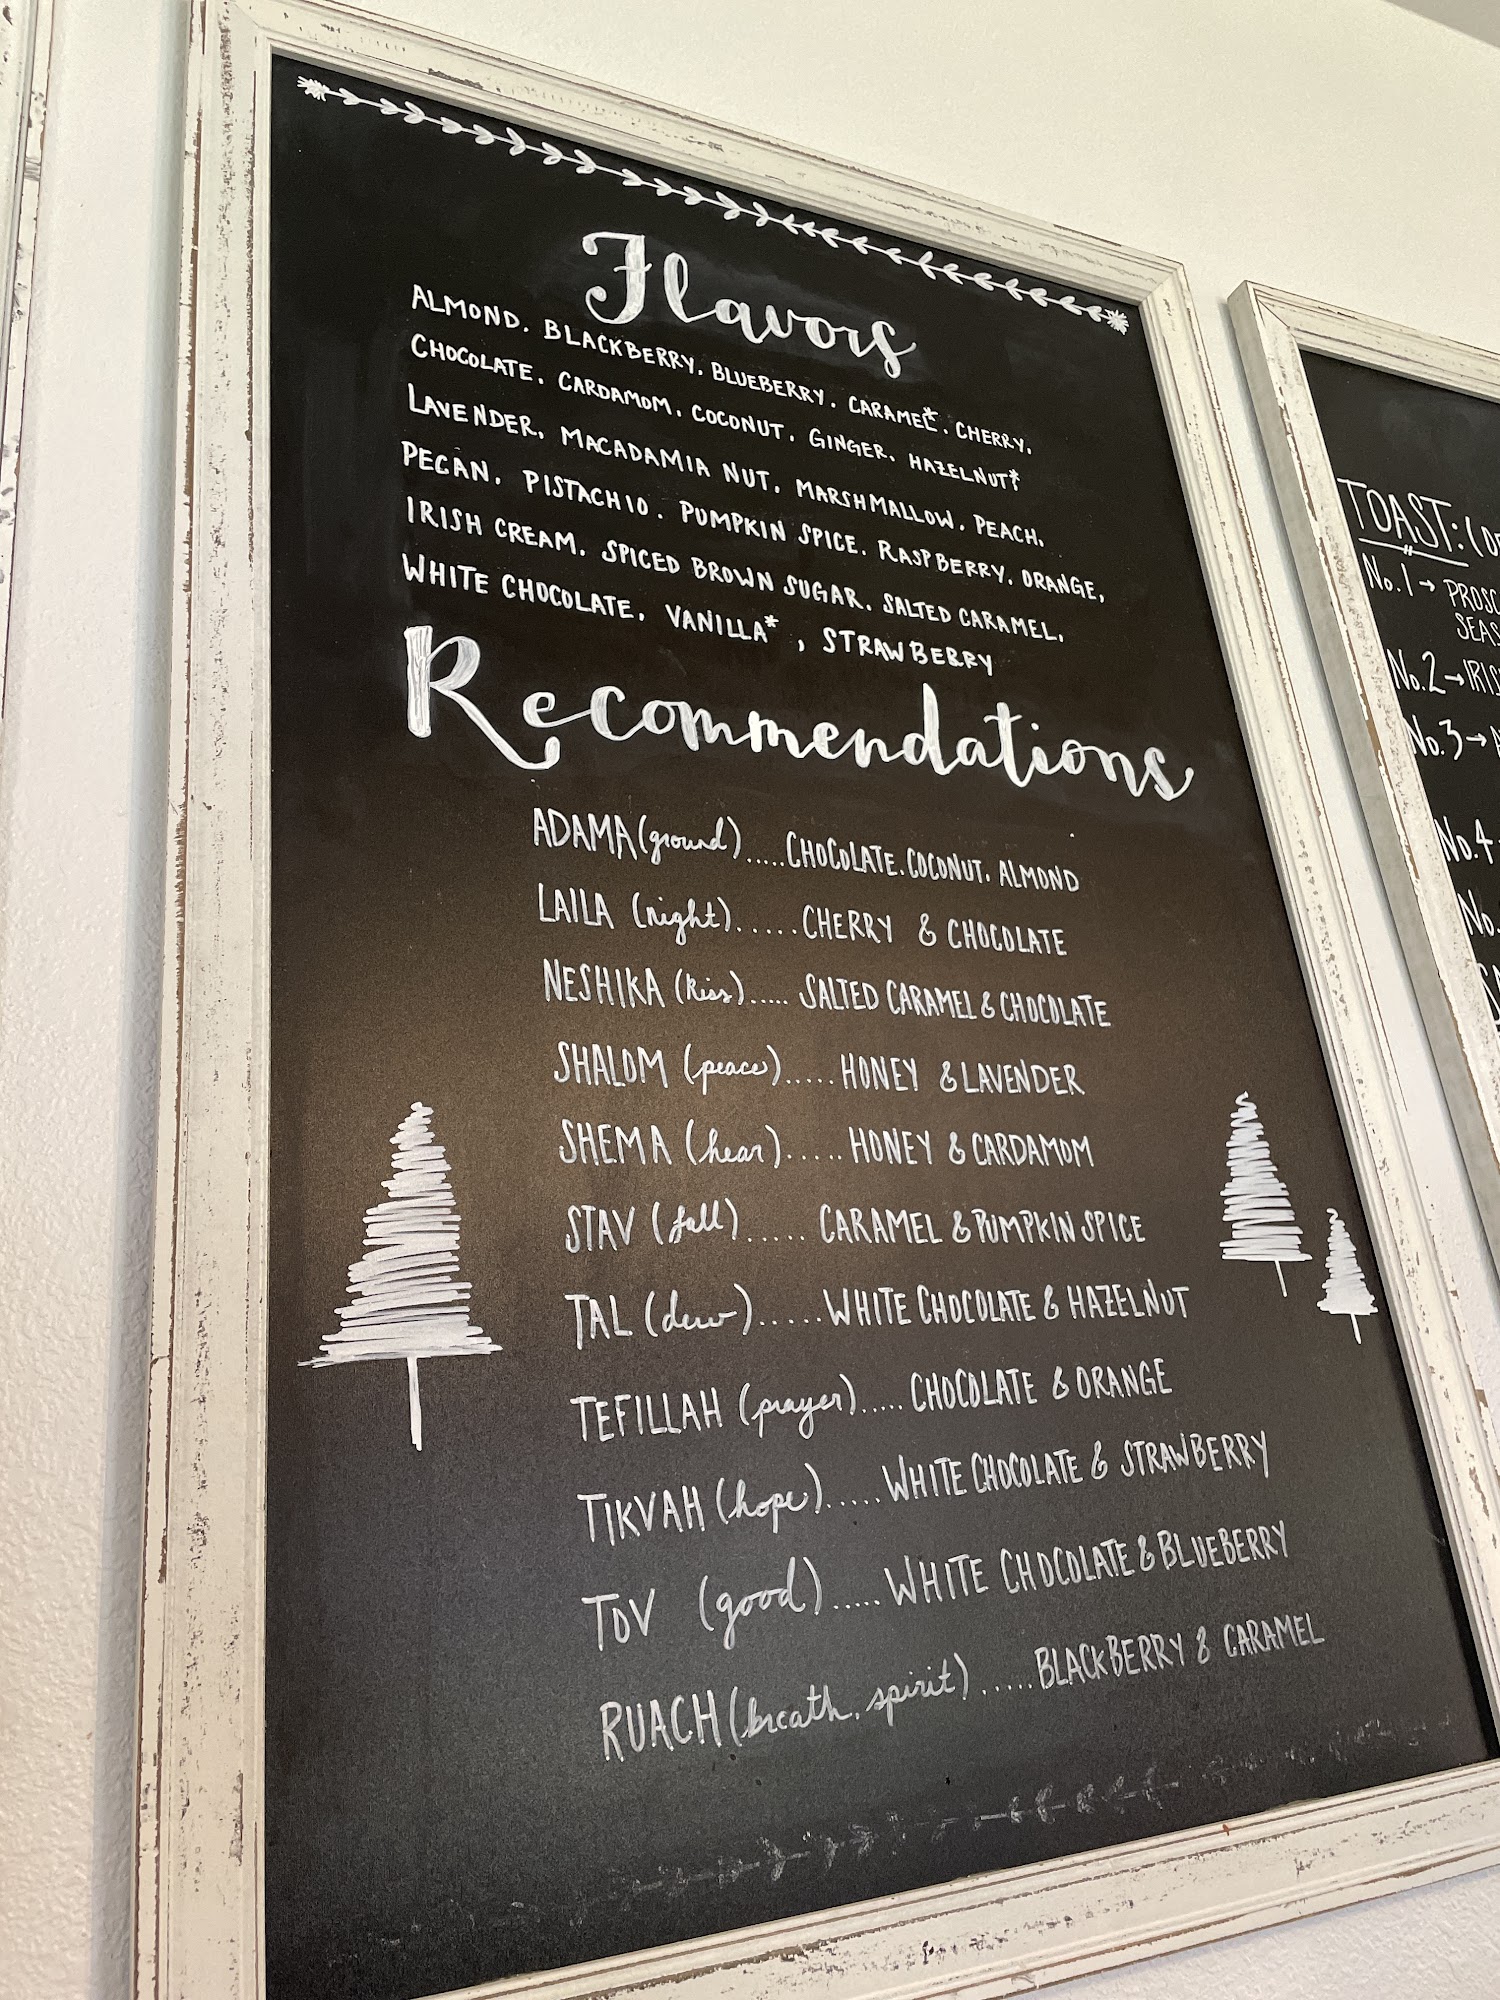 Flavors
ALMOND, BLACKBERRY, BLUEBERRY, CARAMEL*, CHERRY,
CHOCOLATE, CARDAMOM, COCONUT, GINGER, HAZELNUT*,
LAVENDER, MACADAMIA NUT, MARSHMALLOW, PEACH,
PECAN, PISTACHIO, PUMPKIN SPICE, RASPBERRY, ORANGE,
IRISH CREAM, SPICED BROWN SUGAR, SALTED CARAMEL,
WHITE CHOCOLATE, VANILLA*, STRAWBERRY
Recommendations
ADAMA (ground).....CHOCOLATE, COCONUT, ALMOND
LAILA (night)......CHERRY & CHOCOLATE
NESHIKA (kiss)..... SALTED CARAMEL & CHOCOLATE
SHALOM (peace).....HONEY & LAVENDER
SHEMA (hear)..... HONEY & CARDAMOM
STAV (fall)...... CARAMEL & PUMPKIN SPICE
TAL (dew)......WHITE CHOCOLATE & HAZELNUT
TEFILLAH (prayer).....CHOCOLATE & ORANGE
TIKVAH (hope).....WHITE CHOCOLATE & STRAWBERRY
TOV (good).....WHITE CHOCOLATE & BLUEBERRY
RUACH (breath, spirit)......BLACKBERRY & CARAMEL
TOAST:
No.1→
No.2→
No.3→
No.4
No.